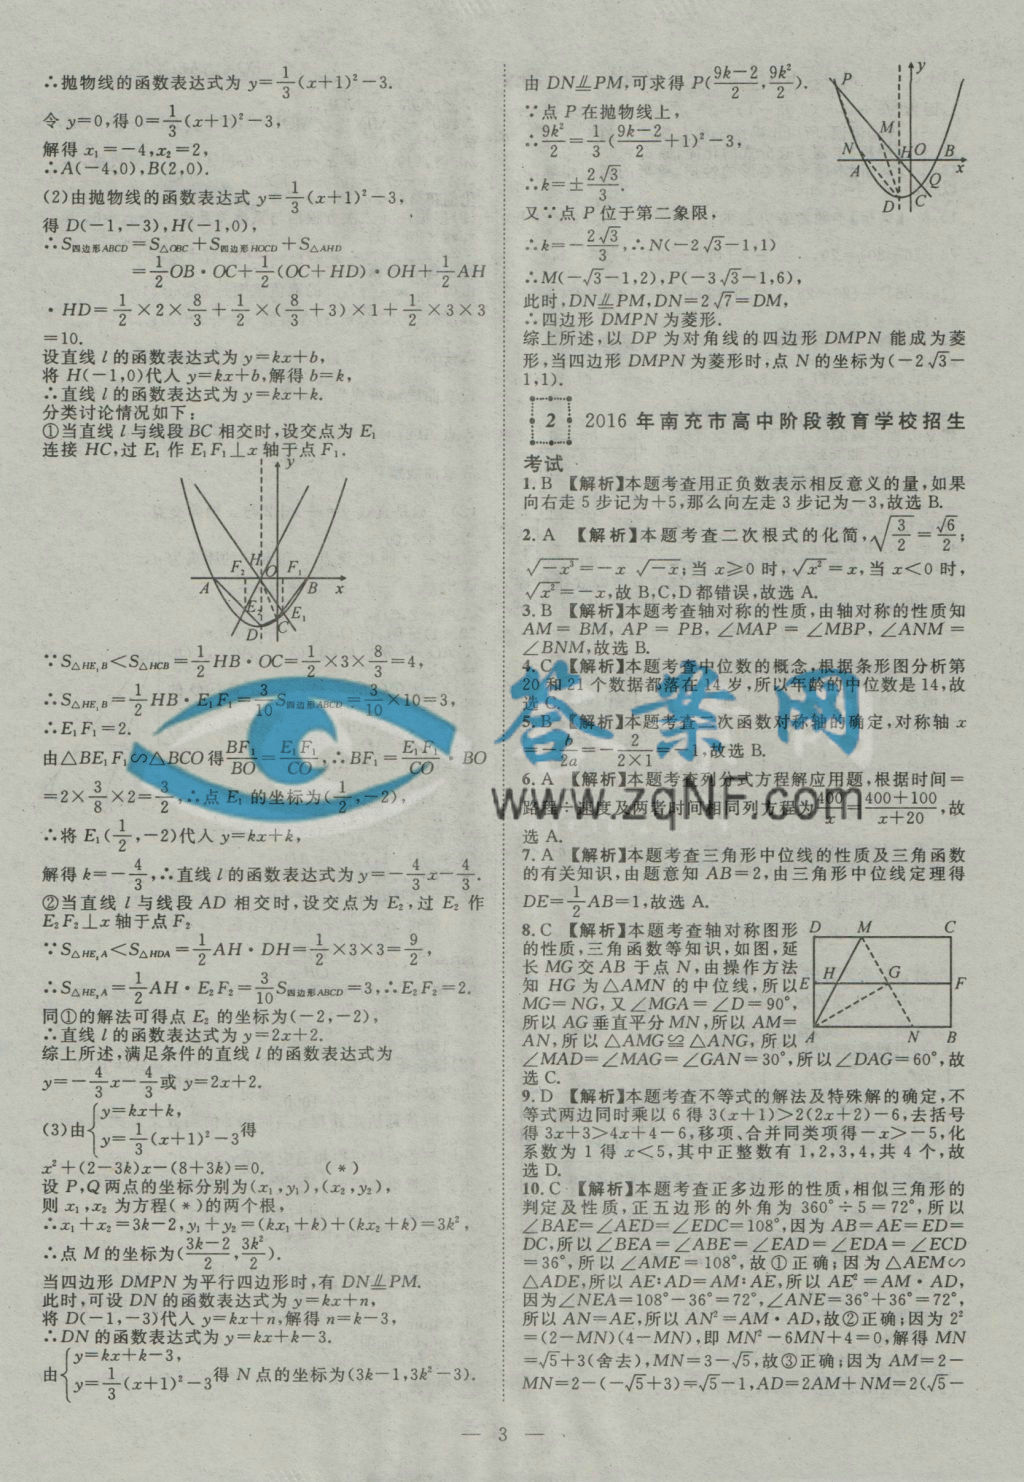 ∴抛物线的函数表达式为 y=1/3(x+1)²-3.
令 y=0,得 0=1/3(x+1)²-3,
解得 x₁=-4,x₂=2,
∴A(-4,0),B(2,0).
(2)由抛物线的函数表达式 y=1/3(x+1)²-3,
得 D(-1,-3),H(-1,0),
∴S四边形ABCD=S△OBC+S四边形HOCD+S△AHD
=1/2OB·OC+1/2(OC+HD)·OH+1/2AH
·HD=1/2×2×8/3+1/2×(8/3+3)×1+1/2×3×3
=10.
设直线 l 的函数表达式为 y=kx+b,
将 H(-1,0)代人 y=kx+b,解得 b=k,
∴直线 l 的函数表达式为 y=kx+k.
分类讨论情况如下:
①当直线 l 与线段 BC 相交时,设交点为 E₁
连接 HC,过 E₁ 作 E₁F₁⊥x 轴于点 F₁.
y
H
F₂ O F₁
A B x
E₂ E₁
D C
∵S△HE₁B<S△HCB=1/2HB·OC=1/2×3×8/3=4,
∴S△HE₁B=1/2HB·E₁F₁=3/10S四边形ABCD=3/10×10=3,
∴E₁F₁=2.
由△BE₁F₁∽△BCO得BF₁/BO=E₁F₁/CO,∴BF₁=E₁F₁/CO·BO
=2×3/8×2=3/2,∴点 E₁ 的坐标为(1/2,-2),
∴将 E₁(1/2,-2)代人 y=kx+k,
解得 k=-4/3,∴直线 l 的函数表达式为 y=-4/3x-4/3.
②当直线 l 与线段 AD 相交时,设交点为 E₂,过 E₂ 作
E₂F₂⊥x 轴于点 F₂
∵S△HE₂A<S△HDA=1/2AH·DH=1/2×3×3=9/2,
∴S△HE₂A=1/2AH·E₂F₂=3/10S四边形ABCD=3,∴E₂F₂=2.
同①的解法可得点 E₂ 的坐标为(-2,-2),
∴直线 l 的函数表达式为 y=2x+2.
综上所述,满足条件的直线 l 的函数表达式为
y=-4/3x-4/3或 y=2x+2.
(3)由{y=kx+k,
y=1/3(x+1)²-3得
x²+(2-3k)x-(8+3k)=0. (*)
设 P,Q 两点的坐标分别为(x₁,y₁),(x₂,y₂),
则 x₁,x₂ 为方程(*)的两个根,
∴x₁+x₂=3k-2,y₁+y₂=(kx₁+k)+(kx₂+k)=3k²,
∴点 M 的坐标为((3k-2)/2,3k²/2).
当四边形 DMPN 为平行四边形时,有 DN⫫PM.
此时,可设 DN 的函数表达式为 y=kx+n,
将 D(-1,-3)代人 y=kx+n,解得 n=k-3,
∴DN 的函数表达式为 y=kx+k-3.
由{y=kx+k-3,
y=1/3(x+1)²-3得 N 点的坐标为(3k-1,3k²-3).
由 DN⫫PM,可求得 P((9k-2)/2,9k²/2).
∵点 P 在抛物线上,
∴9k²/2=1/3((9k-2)/2+1)²-3,
∴k=±2√3/3.
又∵点 P 位于第二象限,
∴k=-2√3/3,∴N(-2√3-1,1)
∴M(-√3-1,2),P(-3√3-1,6),
此时,DN⫫PM,DN=2√7=DM,
∴四边形 DMPN 为菱形.
综上所述,以 DP 为对角线的四边形 DMPN 能成为菱
形,当四边形 DMPN 为菱形时,点 N 的坐标为(-2√3-
1,1).
P y
M
N H O B
A x
Q
D C
2 2016 年南充市高中阶段教育学校招生
考试
1. B 【解析】本题考查用正负数表示相反意义的量,如果
向右走 5 步记为+5,那么向左走 3 步记为-3,故选 B.
2. A 【解析】本题考查二次根式的化简,√(3/2)=√6/2;
√(-x³)=-x√(-x);当 x≥0 时,√(x²)=x,当 x<0 时,
√(x²)=-x,故 B,C,D都错误,故选 A.
3. B 【解析】本题考查轴对称的性质,由轴对称的性质知
AM=BM, AP=PB,∠MAP=∠MBP,∠ANM=
∠BNM,故选 B.
4. C 【解析】本题考查中位数的概念,根据条形图分析第
20 和 21 个数据都落在 14 岁,所以年龄的中位数是 14,故
选 C.
5. B 【解析】本题考查二次函数对称轴的确定,对称轴 x
=-b/2a=-2/(2×1)=-1,故选 B.
6. A 【解析】本题考查列分式方程解应用题,根据时间=
路程÷速度及两者时间相同列方程为400/x=(400+100)/(x+20),故
选 A.
7. A 【解析】本题考查三角形中位线的性质及三角函数
的有关知识,由题意知 AB=2,由三角形中位线定理得
DE=1/2AB=1,故选 A.
8. C 【解析】本题考查轴对称图形
的性质,三角函数等知识,如图,延
长 MG 交 AB 于点 N,由操作方法
知 HG 为△AMN 的中位线,所以
MG=NG,又∠MGA=∠D=90°,
所以 AG 垂直平分 MN,所以 AM=
AN,所以△AMG≌△ANG,所以
∠MAD=∠MAG=∠GAN=30°,所以∠DAG=60°,故
选 C.
D M C
H G
E F
A N B
9. D 【解析】本题考查不等式的解法及特殊解的确定,不
等式两边同时乘以 6 得 3(x+1)>2(2x+2)-6,去括号
得 3x+3>4x+4-6,移项、合并同类项得-x>-5,化
系数为 1 得 x<5,其中正整数有 1,2,3,4,共 4 个,故
选 D.
10. C 【解析】本题考查正多边形的性质,相似三角形的
判定及性质,正五边形的外角为 360°÷5=72°,所以
∠BAE=∠AED=∠EDC=108°,因为 AB=AE=ED=
DC,所以∠BEA=∠ABE=∠EAD=∠EDA=∠ECD
=36°,所以∠AME=108°,故①正确;因为△AEM∽
△ADE,所以 AE:AD=AM:AE,所以 AE²=AM·AD,
因为∠NEA=108°-36°=72°,∠ANE=36°+36°=72°,
所以 AN=AE,所以 AN²=AM·AD,故②正确;因为 2²
=(2-MN)(4-MN),即 MN²-6MN+4=0,解得 MN
=√5+3(舍去),MN=3-√5,故③正确;因为 AM=2-
MN=2-(-√5+3)=√5-1,AD=2AM+NM=2(√5-
答案网
www.zqNF.com
— 3 —